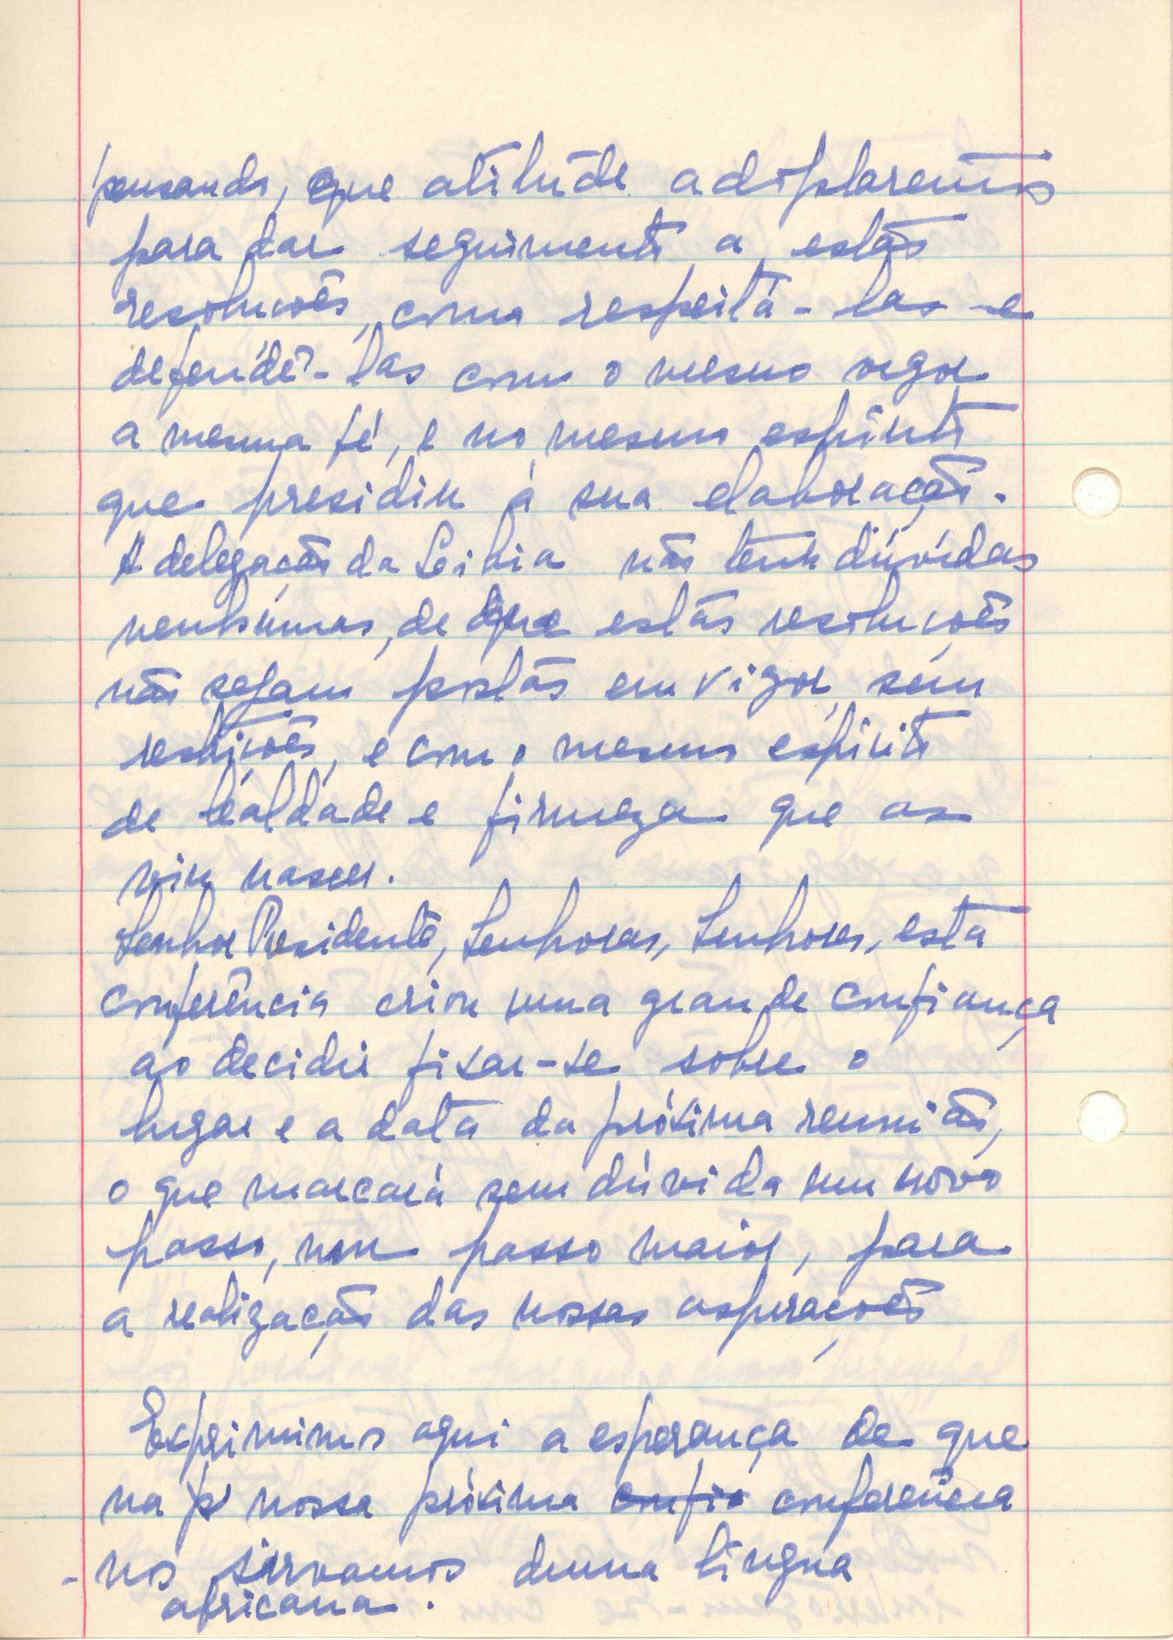 pensando, que atitude adoptaremos
para dar seguimento a estas
resoluções, como respeitá-las e
defendê-las com o mesmo vigor
a mesma fé, e no mesmo espírito
que presidiu à sua elaboração.
A delegação da Leibia não tem dúvidas
nenhumas, de que estas resoluções
não sejam postas em vigor, sem
restrições, e com o mesmo espírito
de lealdade e firmeza que as
viu nascer.
Senhor Presidente, Senhoras, Senhores, esta
conferência criou uma grande confiança
ao decidir fixar-se sobre o
lugar e a data da próxima reunião,
o que marcará sem dúvida um novo
passo, num passo maior, para
a realização das nossas aspirações
Exprimimos aqui a esperança de que
na nossa próxima confia conferência
- nos sirvamos duma língua
africana.